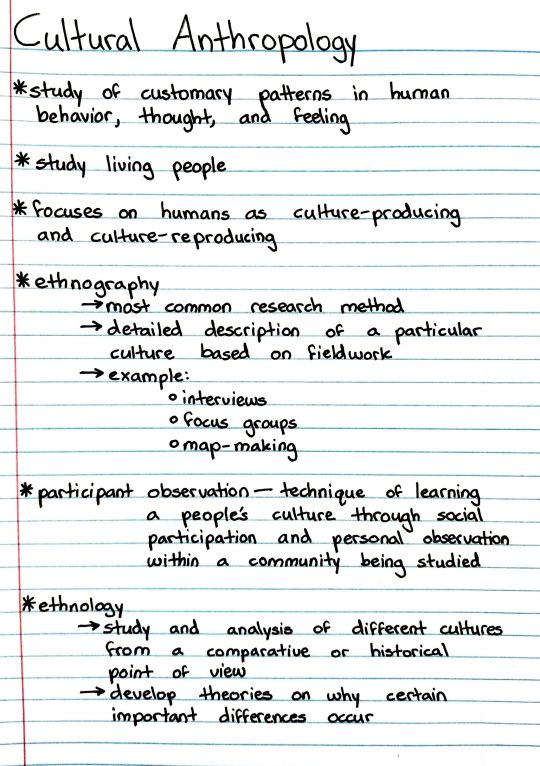 Cultural Anthropology
* study of customary patterns in human
behavior, thought, and feeling
* study living people
* focuses on humans as culture-producing
and culture-reproducing
* ethnography
→ most common research method
→ detailed description of a particular
culture based on fieldwork
→ example:
○ interviews
○ focus groups
○ map-making
* participant observation — technique of learning
a people's culture through social
participation and personal observation
within a community being studied
* ethnology
→ study and analysis of different cultures
from a comparative or historical
point of view
→ develop theories on why certain
important differences occur